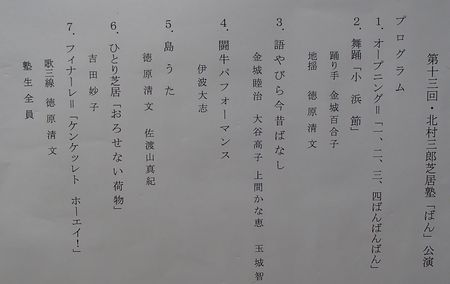 第十三回・北村三郎芝居塾「ばん」公演
プログラム
1．オープニング＝「一、二、三、四ばんばんばん」
2．舞踊「小浜節」
踊り手　金城百合子
地揺　徳原清文
3．語やびら今昔ばなし
金城睦治　大谷高子　上間かな恵　玉城智
4．闘牛パフォーマンス
伊波大志
5．島うた
徳原清文　佐渡山真紀
6．ひとり芝居「おろせない荷物」
吉田妙子
7．フィナーレ＝「ケンケッレト　ホーエイ！」
歌三線　徳原清文
塾生全員